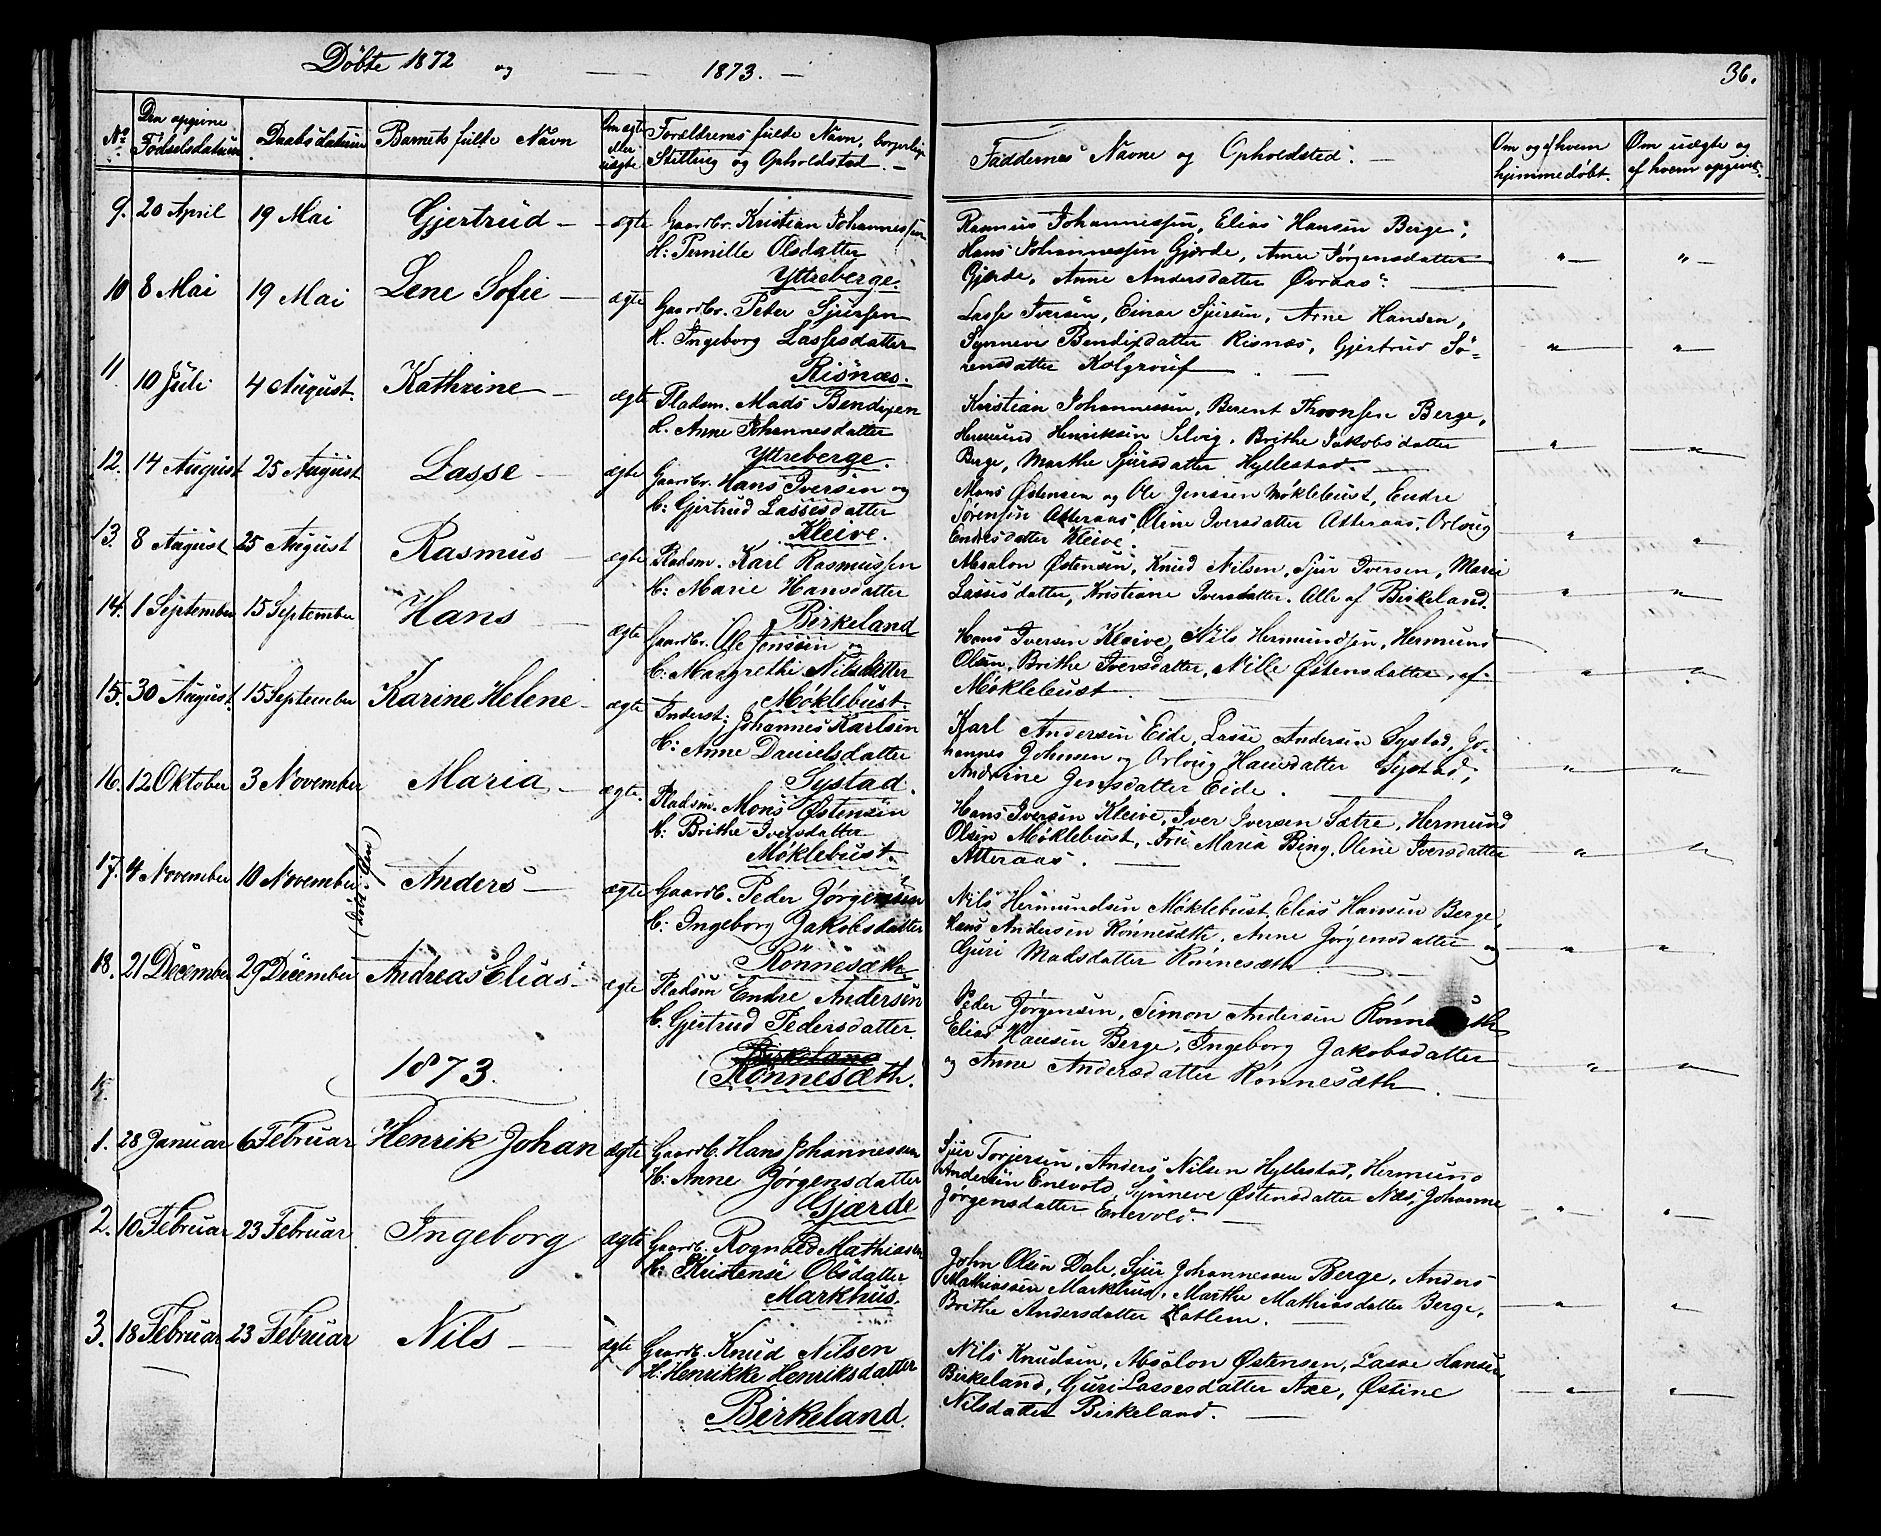 Døbte 1872 og — 1873. —
36.
No Den opgivne Fødselsdatum Daabsdatum Barnets fulde Navn Om ægte eller uægte Forældrenes fulde Navn, borgerlige Stilling og Opholdsted. — Faddernes Navne og Opholdsted. — Om og af hvem hjemmedøbt. Om uægte og af hvem opgivet.
9. 20 April 19 Mai Gjertrud — ægte Gaardbr. Kristian Johannessen
H: Pernille Olsdatter
Yttreberge.
Rasmus Johannessen, Elias Hansen Berge,
Hans Johannessen Gjerde, Anne Jørgensdatter
Gjerde, Anne Andersdatter Øvraas. " "
10 8 Mai 19 Mai Lene Sofie — ægte Gaardbr. Peter Sjursen
H. Ingeborg Lassesdatter
Risnæs.
Lasse Iversen, Einar Sjursen, Arne Hansen,
Synneve Bendixdatter Risnæs, Gjertrud Sø-
rensdatter Kolgrouf " "
11 10 Juli 4 August. Kathrine — ægte Pladsm. Mads Bendixen
H. Anne Johannesdatter
Yttreberge.
Kristian Johannessen, Berent Thronsen Berge,
Hermund Henriksen Selvig, Brithe Jakobsdatter
Berge, Marthe Sjursdatter Hyllestad. " "
12. 14 August 25 August Lasse — ægte Gaardbr. Hans Iversen og
H: Gjertrud Lassesdatter
Kleive.
Mons Østensen og Ole Jenssen Møklebust, Endre
Sørensen Atteraas, Oline Iversdatter Atteraas, Orloug
Endresdatter Kleive. " "
13. 8 August 25 August Rasmus — ægte Pladsm. Karl Rasmussen
H: Marie Hansdatter
Birkeland
Absalon Østensen, Knud Nilsen, Sjur Iversen, Marie
Lassesdatter, Kristiane Iversdatter. Alle af Birkeland. " "
14. 1 September 15 September Hans — ægte Gaardbr. Ole Jenssen og
H: Margrethe Nilsdatter
Møklebust
Hans Iversen Kleive, Nils Hermundsen, Hermund
Olsen, Brithe Iversdatter, Nille Østensdatter, af
Møklebust. " "
15. 30 August. 15 September Karine Helene — ægte Inderst: Johannes Karlsen
H: Anne Danielsdatter
Systad.
Karl Andersen Eide, Lasse Andersen Systad, Jo-
hannes Johnsen og Orloug Hansdatter Systad,
Andrine Jensdatter Eide. " "
16. 12 Oktober 3 November Maria — ægte. Pladsm. Mons Østensen
H: Brithe Iversdatter
Møklebust.
Hans Iversen Kleive, Iver Iversen Sætre, Hermund
Olsen Møklebust, Frü Maria Bing, Oline Iversdatter
Atteraas. " "
17. 4 November 10 November Anders — ægte Gaardb. Peder Jørgensen
H: Ingeborg Jakobsdatter
Rönnesæth
Nils Hermundsen Møklebust, Elias Hansen Berge,
Hans Andersen Rönnesæth, Anne Jørgensdatter og
Guri Madsdatter Rönnesæth " "
18. 21 December 29 December Andreas Elias — ægte Pladsm Endre Andersen
H. Gjertrud Pedersdatter
Birkeland
Rönnesæth.
Peder Jørgensen, Simon Andersen Rönnesæth
Elias Hansen Berge, Ingeborg Jakobsdatter
og Anne Andersdatter Rönnesæth " "
1873.
1. 28 Januar 6 Februar Henrik Johan ægte Gaardb. Hans Johannessen
H: Anne Jørgensdatter
Gjærde
Sjur Torjersen, Anders Nilsen Hyllestad, Hermund
Andersen Enevold, Synneve Østensdatter Næs, Johanne
Jørgensdatter Enevold. " "
2. 10 Februar 23 Februar Ingeborg ægte Gaardb. Rognald Mathiassen
H: Kristense Olsdatter
Markhus.
John Olsen Dale, Sjur Johannessen Berge, Anders
Mathiassen Markhus, Marthe Mathiasdatter Berge,
Brithe Andersdatter Hatlem. " "
3. 18 Februar 23 Februar Nils — ægte Gaardb. Knud Nilsen
H. Henrikke Henriksdatter
Birkeland.
Nils Knudsen, Absalon Østensen, Lasse Hansen
Birkeland, Guri Lassesdatter Axe, Østine
Nilsdatter Birkeland. " "